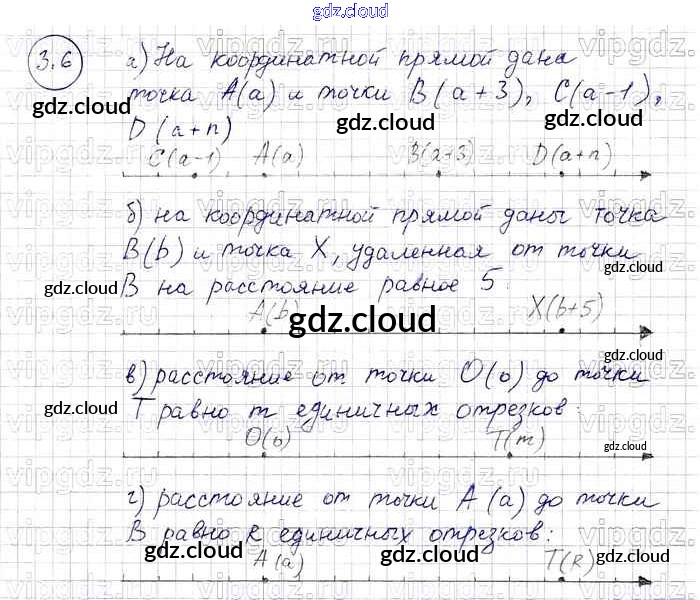 gdz.cloud
3.6
а) На координатной прямой дана
точка A(a) и точки B(a+3), C(a-1),
gdz.cloud gdz.cloud gdz.cloud
D(a+n)
C(a-1) A(a) B(a+3) D(a+n)
б) на координатной прямой даны точка
B(b) и точка X, удаленная от точки
gdz.cloud
B на расстояние равное 5
gdz.cloud
A(b) X(b+5)
gdz.cloud
в) расстояние от точки O(o) до точки
T равно m единичных отрезков:
gdz.cloud gdz.cloud
O(o) T(m)
gdz.cloud
г) расстояние от точки A(a) до точки
B равно R единичных отрезков:
gdz.cloud gdz.cloud gdz.cloud
A(a) T(R)